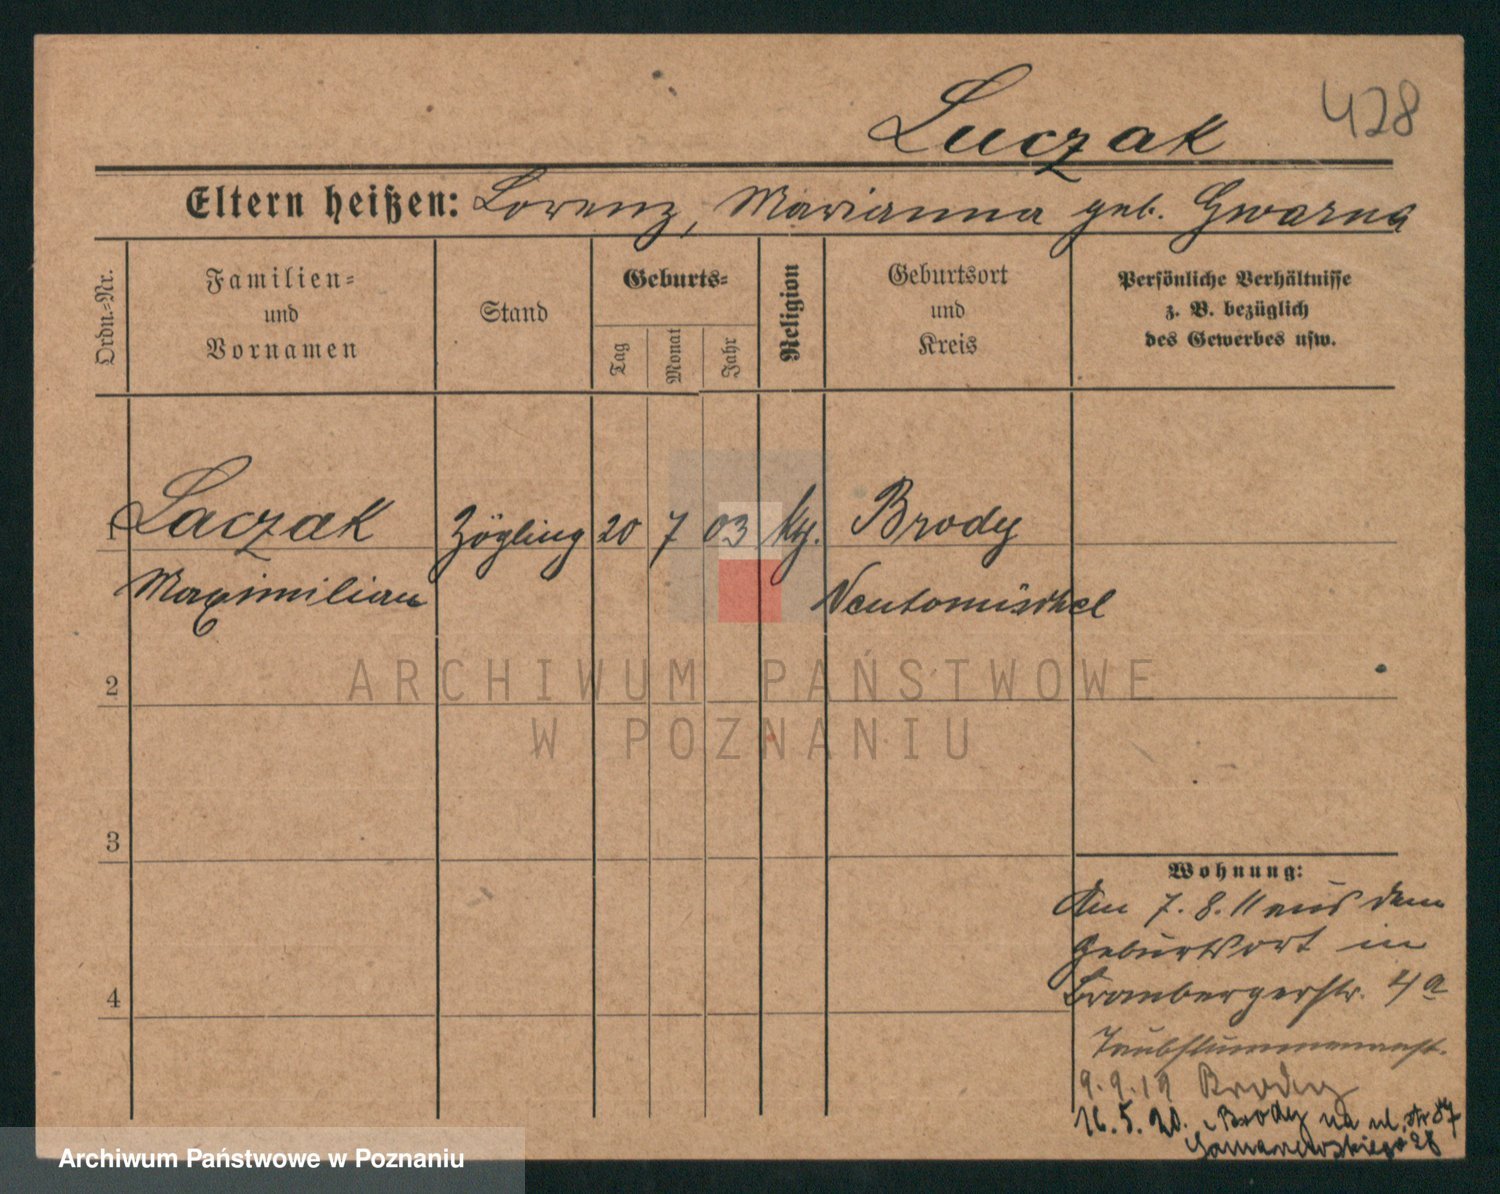 428
Luczak
Eltern heißen: Lorenz, Marianna geb. Gwarna
Ordn.-Nr.
Familien- und Vornamen
Stand
Geburts-
Tag
Monat
Jahr
Religion
Geburtsort und Kreis
Persönliche Verhältnisse
z. B. bezüglich
des Gewerbes usw.
1 Laczak Zögling 20 7 03 Brody
Maximilian Neutomischel
2
3
4
Wohnung:
Am 7. 8. 11 aus dem
Geburtsort in
Brombergerstr. 4a
Taubstummenanst.
9. 9. 19 Brody
16. 5. 20. z Brody na ul.
28
ARCHIWUM PAŃSTWOWE
W POZNANIU
Archiwum Państwowe w Poznaniu